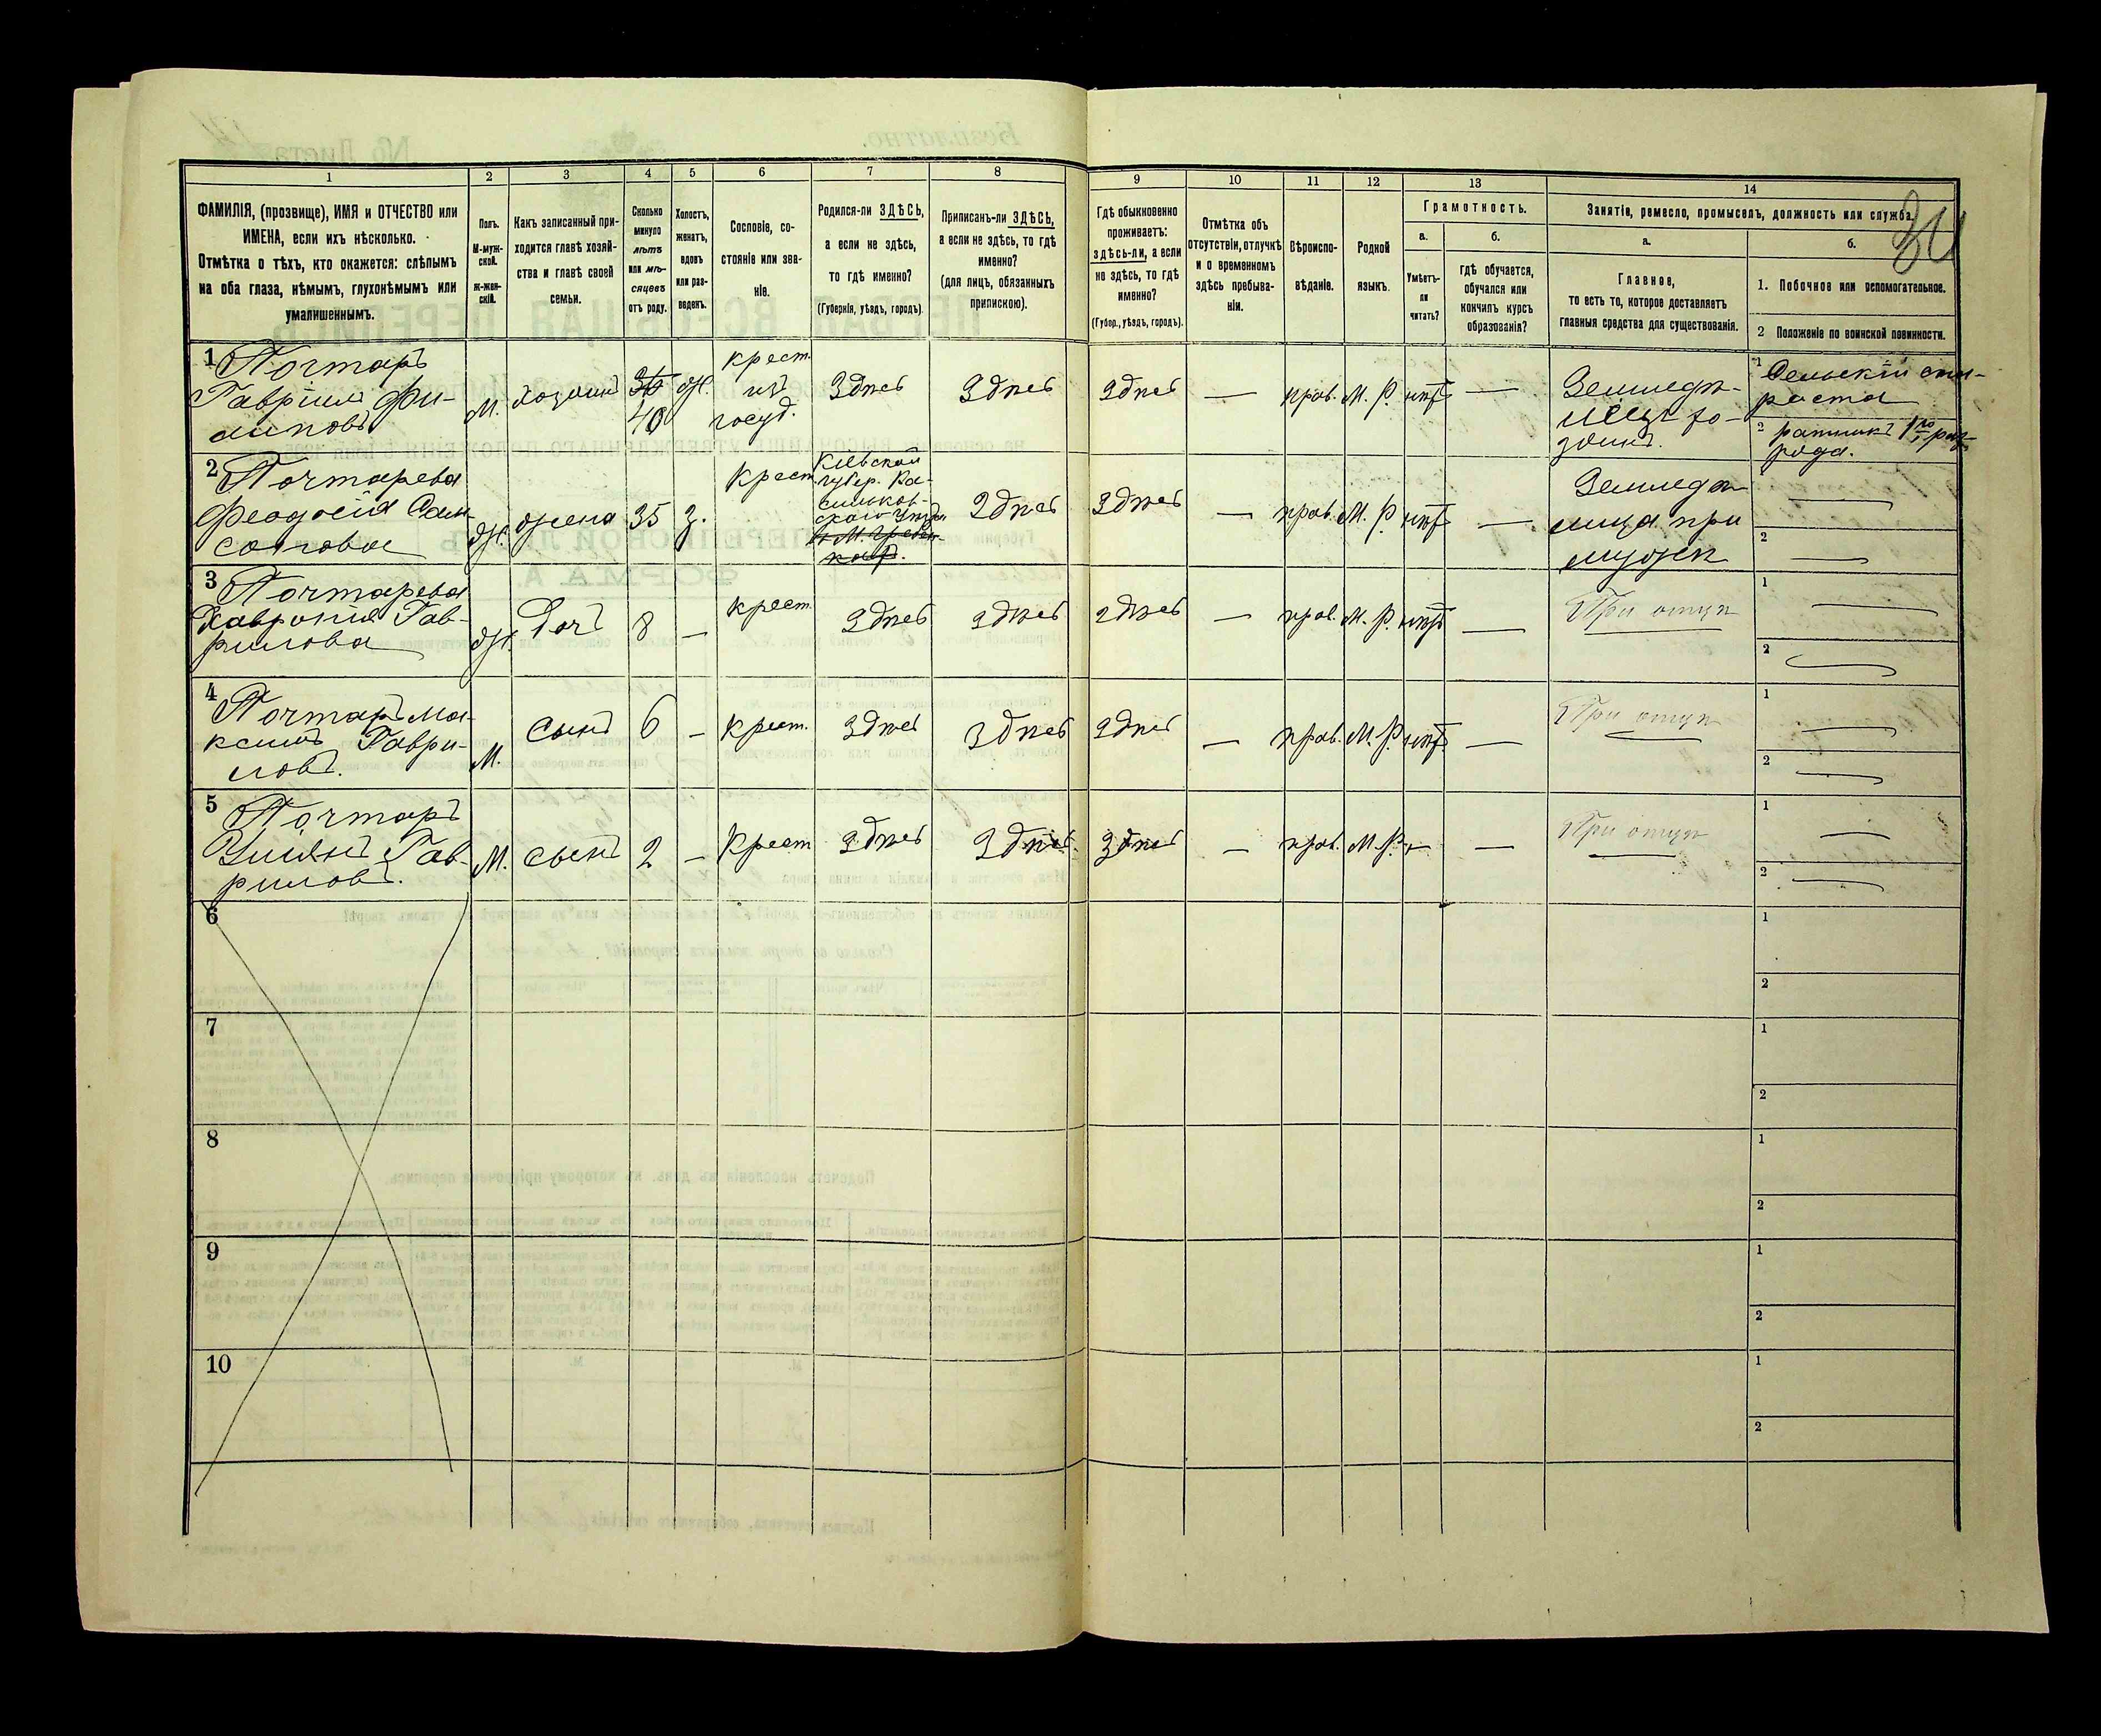 1 2 3 4 5 6 7 8 9 10 11 12 13 14
ФАМИЛІЯ, (прозвище), ИМЯ и ОТЧЕСТВО или
ИМЕНА, если ихъ нѣсколько.
Отмѣтка о тѣхъ, кто окажется: слѣпымъ
на оба глаза, нѣмымъ, глухонѣмымъ или
умалишеннымъ.
Полъ.
М-муж-
ской.
Ж-жен-
скій.
Какъ записанный при-
ходится главѣ хозяй-
ства и главѣ своей
семьи.
Сколько
минуло
лѣтъ
или мѣ-
сяцевъ
отъ роду.
Холостъ,
женатъ,
вдовъ
или раз-
веденъ.
Сословіе, со-
стояніе или зва-
ніе.
Родился-ли ЗДѢСЬ,
а если не здѣсь,
то гдѣ именно?
(Губернія, уѣздъ, городъ)
Приписанъ-ли ЗДѢСЬ,
а если не здѣсь, то гдѣ
именно?
(для лицъ, обязанныхъ
припискою).
Гдѣ обыкновенно
проживаетъ:
здѣсь-ли, а если
не здѣсь, то гдѣ
именно?
(Губер., уѣздъ, городъ).
Отмѣтка объ
отсутствіи, отлучкѣ
и о временномъ
здѣсь пребыва-
ніи.
Вѣроиспо-
вѣданіе.
Родной
языкъ.
Грамотность.
а.
Умѣетъ-
ли
читать?
б.
гдѣ обучается,
обучался или
кончилъ курсъ
образованія?
Занятіе, ремесло, промыселъ, должность или служба.
а.
Главное,
то есть то, которое доставляетъ
главныя средства для существованія.
б.
1. Побочное или вспомогательное.
2 Положеніе по воинской повинности.
1 Почтаръ
Гавріилъ Фи-
липовъ
М.
хозяинъ
40
Ж.
крест.
изъ
госуд.
Здѣсь
Здѣсь
Здѣсь
—
прав.
М. Р.
нѣтъ
—
Земледѣ-
лецъ хо-
зяинъ.
1 Сельскій ста-
роста
2 ратникъ 1го раз-
ряда.
2 Почтарева
Феодосія Сам-
сонова
Ж.
жена
35
З.
крест.
Кіевской
губер. Ва-
сильков-
скаго уѣзда
Здѣсь
Здѣсь
—
прав.
М. Р.
нѣтъ
—
Земледѣ-
лица при
мужѣ
1 —
2 —
3 Почтарева
Хавронія Гав-
рилова
Ж.
Дочь
8
—
крест.
Здѣсь
Здѣсь
Здѣсь
—
прав.
М. Р.
нѣтъ
—
При отцѣ
1 —
2 —
4 Почтаръ Ма-
ксимъ Гаври-
ловъ.
М.
сынъ
6
—
крест.
Здѣсь
Здѣсь
Здѣсь
—
прав.
М. Р.
нѣтъ
—
При отцѣ
1 —
2 —
5 Почтаръ
Ульянъ Гав-
риловъ.
М.
сынъ
2
—
крест
Здѣсь
Здѣсь
Здѣсь
—
прав.
М. Р.
—
—
При отцѣ
1 —
2 —
6
1
2
7
1
2
8
1
2
9
1
2
10
1
2